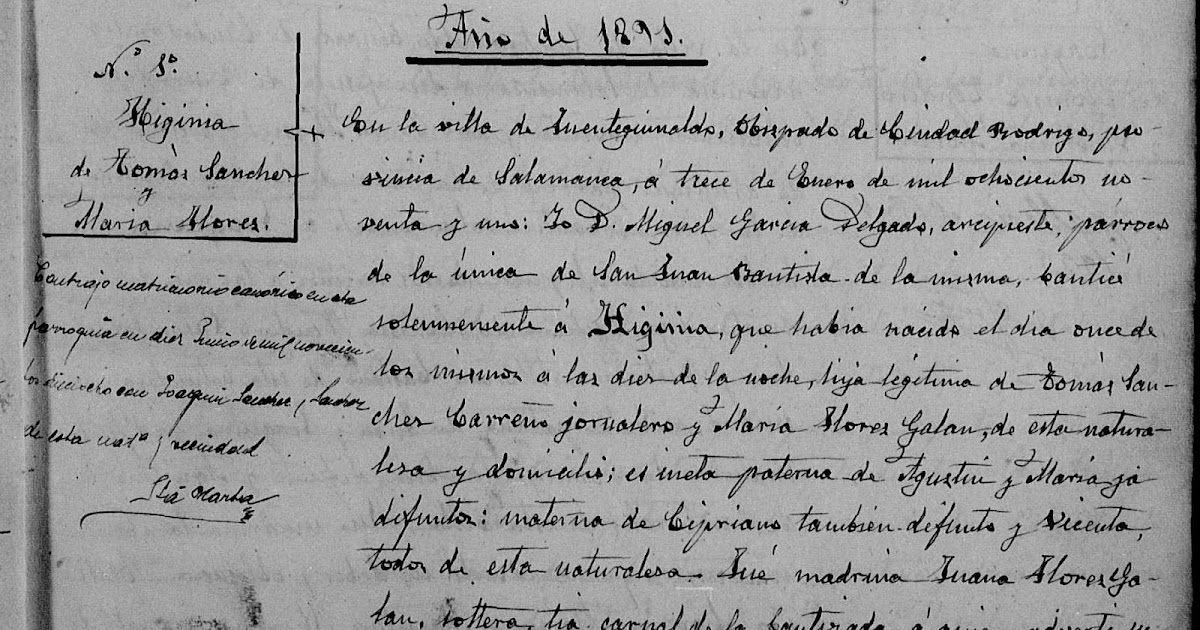 Año de 1891.
N.º 5º
Higinia
de Tomás Sanchez
y
María Flores.
En la villa de Fuenteguinaldo, Obispado de Ciudad Rodrigo, pro-
vincia de Salamanca, á trece de Enero de mil ochocientos no-
venta y uno: Yo D. Miguel Garcia Delgado, arcipreste, párroco
de la única de San Juan Bautista de la misma, bauticé
solemnemente á Higinia, que habia nacido el dia once de
los mismos á las diez de la noche, hija legítima de Tomás San-
chez Carreño jornalero y María Flores Galan, de esta natura-
leza y domicilio; es nieta paterna de Agustin y María ya
difuntos: materna de Cipriano también difunto y Vicenta,
todos de esta naturaleza. Fué madrina Juana Flores Ga-
lan, soltera, tia carnal de la bautizada, á quien advertí
Contrajo matrimonio canónico en esta
parroquia en diez Junio de mil novecien-
tos dieciocho con Joaquin Sanchez y Sanchez
de esta nat.ª y vecindad
Stá Marta